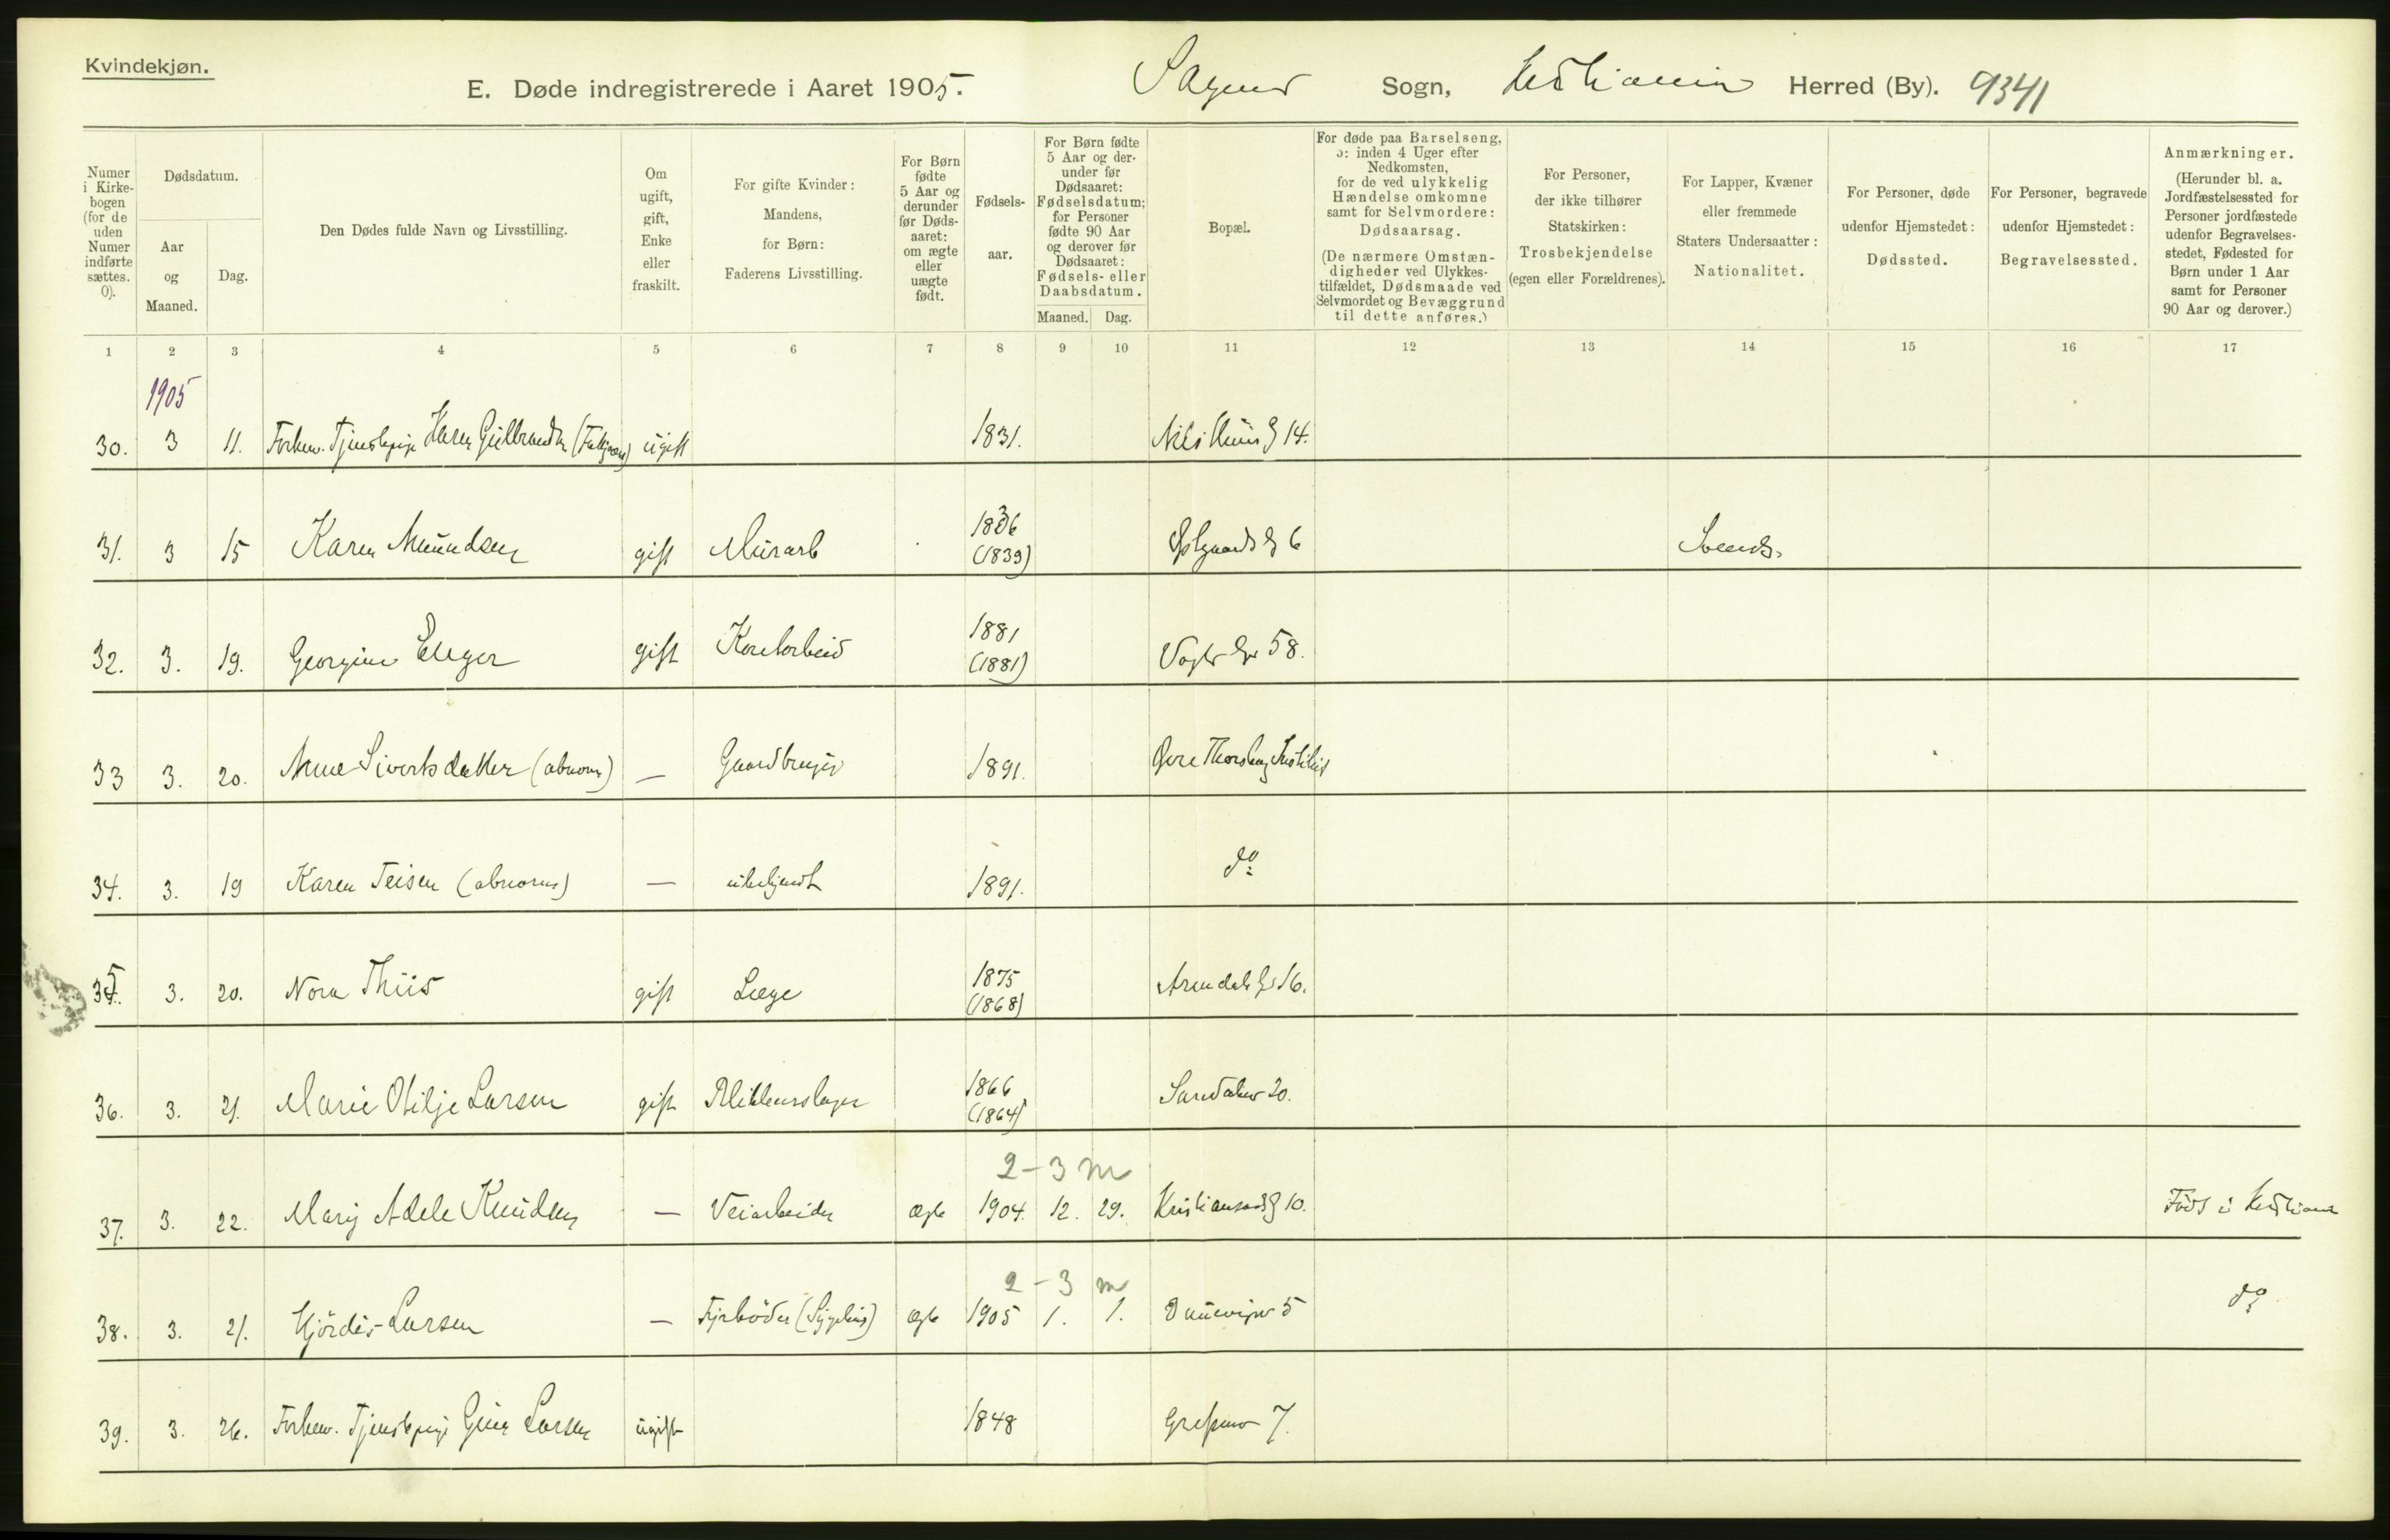 Kvindekjøn.
E. Døde indregistrerede i Aaret 1905. Sagene Sogn, Kristiania Herred (By). 9341
Numer i Kirkebogen (for de uden Numer indførte sættes. 0).
Dødsdatum.
Aar og Maaned.
Dag.
Den Dødes fulde Navn og Livsstilling.
Om ugift, gift, Enke eller fraskilt.
For gifte Kvinder: Mandens, for Børn: Faderens Livsstilling.
For Børn fødte 5 Aar og derunder før Dødsaaret: om ægte eller uægte født.
Fødselsaar.
For Børn fødte 5 Aar og derunder før Dødsaaret: Fødselsdatum; for Personer fødte 90 Aar og derover før Dødsaaret: Fødsels- eller Daabsdatum.
Maaned. Dag.
Bopæl.
For døde paa Barselseng, ɔ: inden 4 Uger efter Nedkomsten, for de ved ulykkelig Hændelse omkomne samt for Selvmordere: Dødsaarsag.
(De nærmere Omstændigheder ved Ulykkestilfældet, Dødsmaade ved Selvmordet og Bevæggrund til dette anføres.)
For Personer, der ikke tilhører Statskirken: Trosbekjendelse (egen eller Forældrenes).
For Lapper, Kvæner eller fremmede Staters Undersaatter: Nationalitet.
For Personer, døde udenfor Hjemstedet: Dødssted.
For Personer, begravede udenfor Hjemstedet: Begravelsessted.
Anmærkninger.
(Herunder bl. a. Jordfæstelsessted for Personer jordfæstede udenfor Begravelsesstedet, Fødested for Børn under 1 Aar samt for Personer 90 Aar og derover.)
1 2 3 4 5 6 7 8 9 10 11 12 13 14 15 16 17
1905
30. 3 11. Forhenv. Tjenestepige Karen Gulbrandsen ugift 1831. Nils Huus g 14.
31. 3 15 Karen Amundsen gift Murarb 1836 (1839) 6 Svensk.
32. 3. 19. Georgine gift 1881 (1881) Vogts g. 58.
33 3. 20. Anne Sivertsdatter (abnorm) — Gaardbruger 1891. Thorshaug Institut
34. 3. 19 Karen Teisen (abnorm) — ubekjendt 1891. do
35. 3. 20. Nora Thiis gift Læge 1875 (1868) Arendals g. 16.
36. 3. 21. Marie Otilje Larsen gift Blikkenslager 1866 (1864) Sandaker 20.
2-3 m
37. 3. 22. Mary Adele Knudsen — Veiarbeider ægte 1904. 12. 29. Kristiansands g 10. Født i Kristiania
2-3 m
38. 3. 21. Hjördis Larsen — Fyrböder (Sygehus) ægte 1905 1. 1. 5 do
39. 3. 26. Forhenv. Tjenestepige Larsen ugift 1848 7.